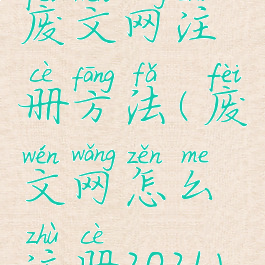 废文网注
cè fāng fǎ fèi
册方法(废
wén wǎng zěn me
文网怎么
zhù cè
注册2021)